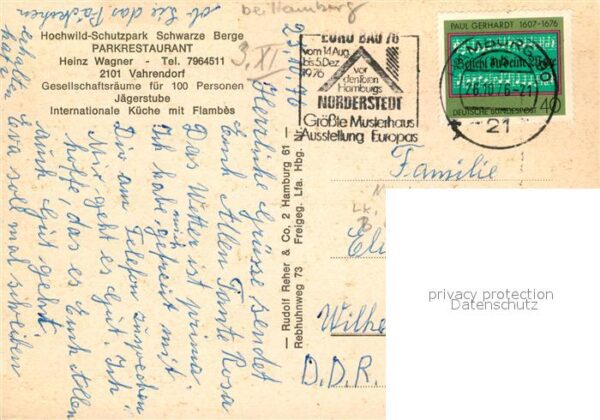 bei Hamburg
Hochwild-Schutzpark Schwarze Berge
PARKRESTAURANT
Heinz Wagner - Tel. 7964511
2101 Vahrendorf
Gesellschaftsräume für 100 Personen
Jägerstube
Internationale Küche mit Flambès
3. XI
EURO BAU 76
vom 14. Aug.
bis 5. Dez.
1976
vor
den Toren
Hamburgs
NORDERSTEDT
Größte Musterhaus
Ausstellung Europas
PAUL GERHARDT 1607-1676
DEUTSCHE BUNDESPOST
40
26.10.76-21
21
Herrliche Grüsse sendet
Euch Allen Tante Rosa
Das Wetter ist prima.
Ich habe mich gefreut mit
Dir am Telefon zu sprechen
Mir geht es gut. Ich
hoffe, das es Euch Allen
auch gut geht
Eva soll mal schreiben
erhalten hat
ob Sie das Päckchen
— Rudolf Reher & Co, 2 Hamburg 61 —
Rebhuhnweg 73 Freigeg. Lfa. Hbg.
Familie
D.D.R.
privacy protection
Datenschutz